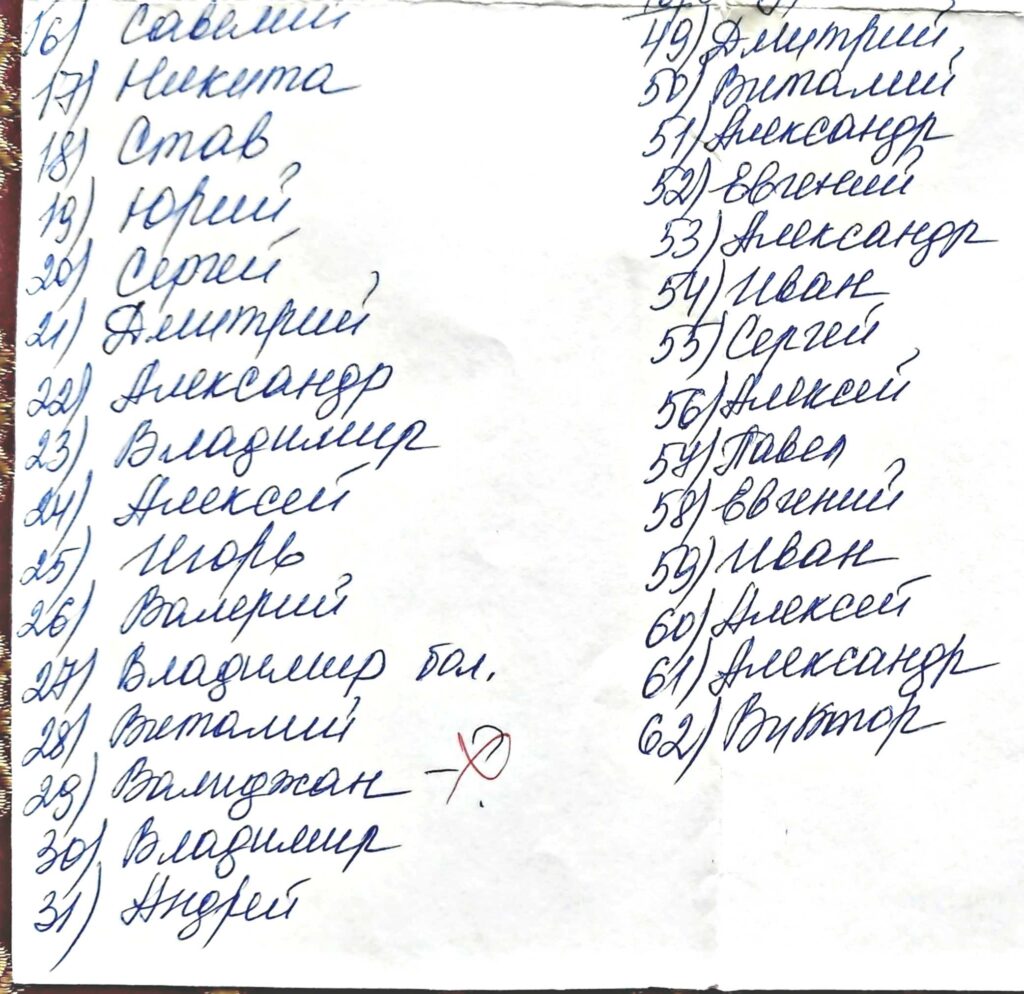 16) Савелий
17) Никита
18) Став
19) Юрий
20) Сергей
21) Дмитрий
22) Александр
23) Владимир
24) Алексей
25) Игорь
26) Валерий
27) Владимир бол.
28) Виталий
29) Валиджан - ?
30) Владимир
31) Андрей
49) Дмитрий
50) Виталий
51) Александр
52) Евгений
53) Александр
54) Иван
55) Сергей
56) Алексей
57) Павел
58) Евгений
59) Иван
60) Алексей
61) Александр
62) Виктор